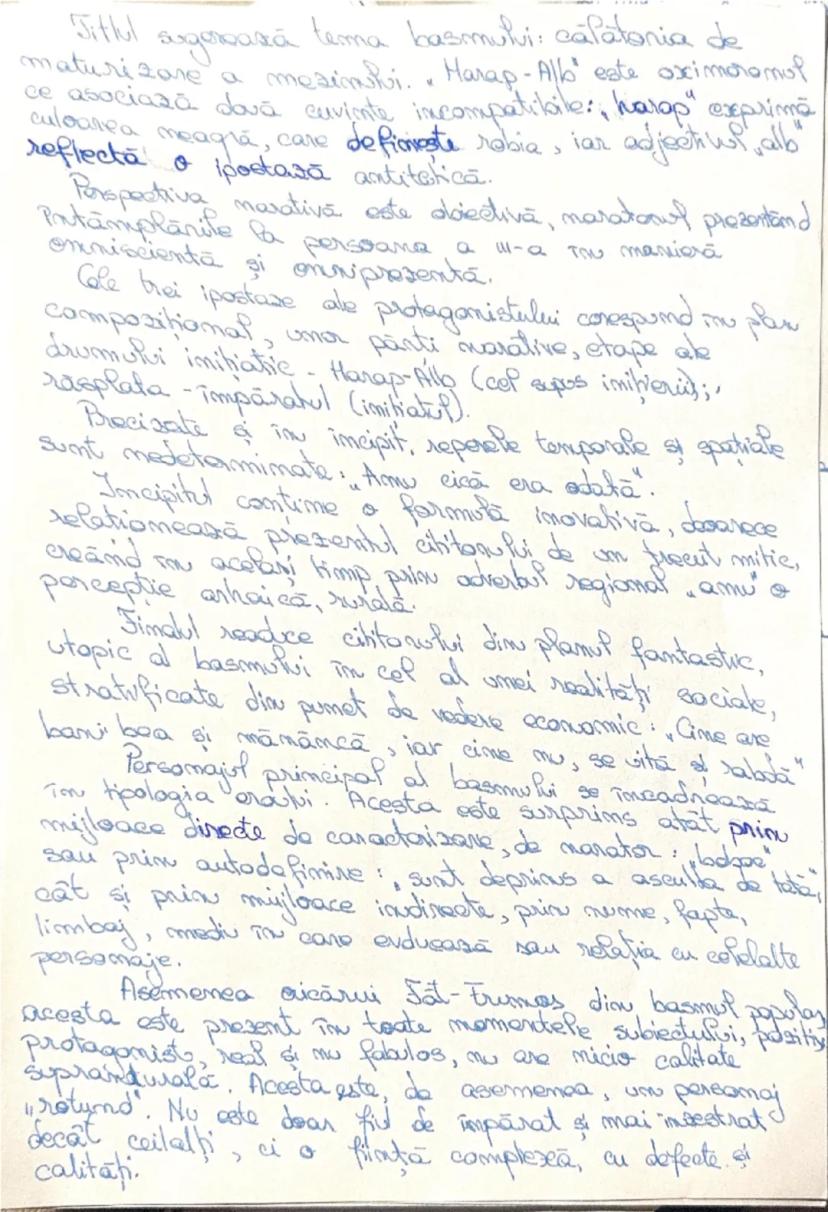 Titlul sugerează tema basmului: călătoria de
maturizare a mezinului. „Harap-Alb" este oximoronul
ce asociază două cuvinte incompatibile: „harap" exprimă
culoarea neagră, care definește robia, iar adjectivul „alb"
reflectă o ipostază antitetică.
Perspectiva narativă este obiectivă, naratorul prezentând
întâmplările la persoana a III-a în manieră
omniscientă și omniprezentă.
Cele trei ipostaze ale protagonistului corespund în plan
compozițional, unor părți narative, etape ale
drumului inițiatic - Harap-Alb (cel supus inițierii);,
răsplata - împăratul (inițiatul).
Precizate și în incipit, reperele temporale și spațiale
sunt nedeterminate: „Amu cică era odată".
Incipitul conține o formulă inovativă, deoarece
relaționează prezentul cititorului de un trecut mitic,
creând în același timp prin adverbul regional „amu" o
percepție arhaică, rurală.
Finalul readuce cititorului din planul fantastic,
utopic al basmului în cel al unei realități sociale,
stratificate din punct de vedere economic: „Cine are
bani bea și mănâncă, iar cine nu, se uită și rabdă"
Personajul principal al basmului se încadrează
în tipologia eroului. Acesta este surprins atât prin
mijloace directe de caracterizare, de narator: „boboc"
sau prin autodefinire: „sunt deprins a asculta de tată",
cât și prin mijloace indirecte, prin nume, fapte,
limbaj, mediu în care evoluează sau relația cu celelalte
personaje.
Asemenea oricărui Făt-Frumos din basmul popular,
acesta este prezent în toate momentele subiectului, pozitiv,
protagonist, real și nu fabulos, nu are nicio calitate
supranaturală. Acesta este, de asemenea, un personaj
„rotund". Nu este doar fiul de împărat și mai înzestrat
decât ceilalți, ci o ființă complexă, cu defecte și
calități.